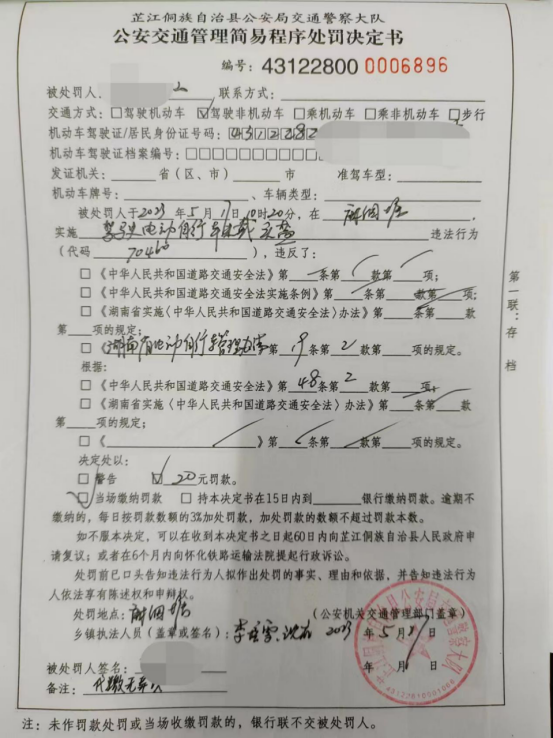 芷江侗族自治县公安局交通警察大队
公安交通管理简易程序处罚决定书
编号：43122800 0006896
被处罚人 联系方式：
交通方式：□驾驶机动车 ☑驾驶非机动车 □乘机动车 □乘非机动车 □步行
机动车驾驶证/居民身份证号码：431228
机动车驾驶证档案编号：□□□□□□□□□□
发证机关： 省（区、市） 市 准驾车型：
机动车牌号： 、车辆类型：
被处罚人于2023年5月17日10时20分，在
实施驾驶电动自行车 违法行为
（代码 ），违反了：
□《中华人民共和国道路交通安全法》第 条第 款第 项；
□《中华人民共和国道路交通安全法实施条例》第 条第 款第 项；
□《湖南省实施〈中华人民共和国道路交通安全法〉办法》第 条第 款
第 项的规定；
□《湖南省电动自行车管理办法 第19条第2款第 项的规定。
根据：
□《中华人民共和国道路交通安全法》第48条第2款第 项；
□《湖南省实施〈中华人民共和国道路交通安全法〉办法》第 条第 款
第 项的规定；
□《 》第 条第 款第 项的规定。
决定处以：
□警告 ☑20元罚款。
☑当场缴纳罚款 □持本决定书在15日内到 银行缴纳罚款。逾期不
缴纳的，每日按罚款数额的3%加处罚款，加处罚款的数额不超过罚款本数。
如不服本决定，可以在收到本决定书之日起60日内向芷江侗族自治县人民政府申
请复议；或者在6个月内向怀化铁路运输法院提起行政诉讼。
处罚前已口头告知违法行为人拟作出处罚的事实、理由和依据，并告知违法行为
人依法享有陈述权和申辩权。
处罚地点： （公安机关交通管理部门盖章）
乡镇执法人员（盖章或签名）： 2023年5月17日
被处罚人签名： 年 月 日
备注：
注：未作罚款处罚或当场收缴罚款的，银行联不交被处罚人。
第一联：存档